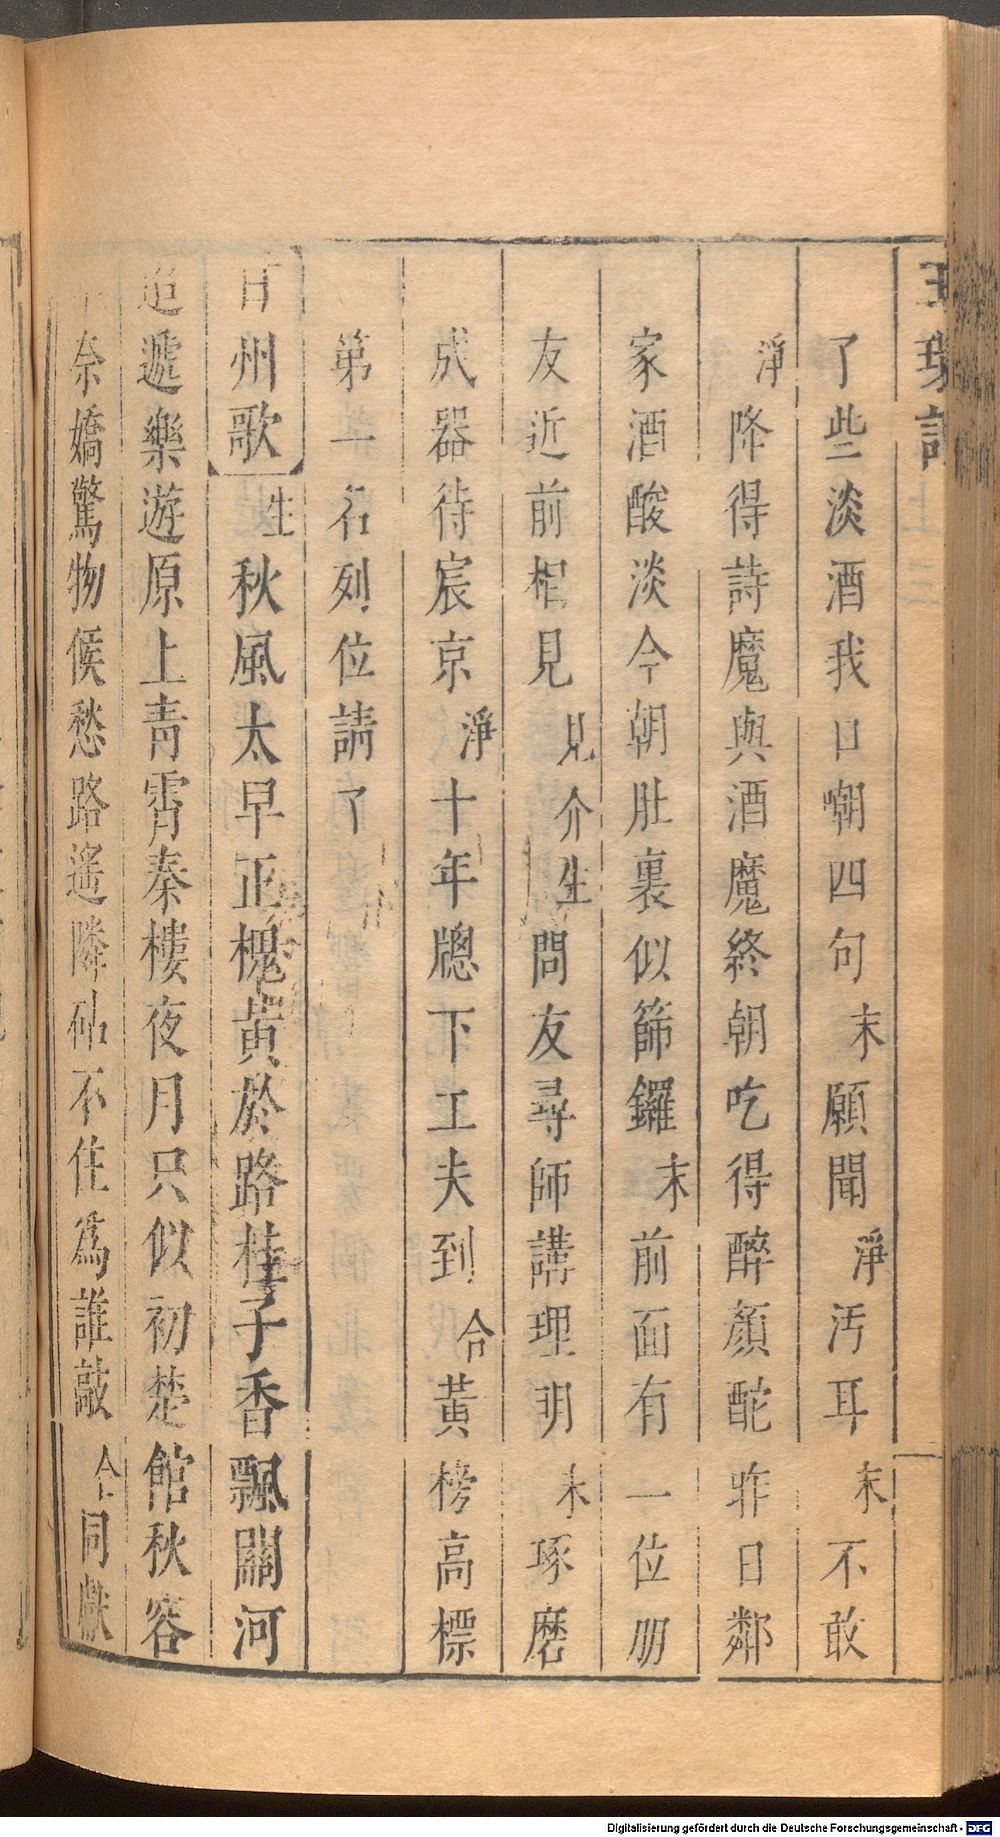 玉環記
上 三
了些淡酒我口嘲四句末願聞淨污耳末不敢
淨降得詩魔與酒魔終朝吃得醉顏酡昨日鄰
家酒酸淡今朝肚裏似篩鑼末前面有一位朋
友近前相見見介生問友尋師講理明末琢磨
成器待宸京淨十年牕下工夫到合黃榜高標
第一名列位請了
甘州歌生秋風太早正槐黃於路桂子香飄關河
迢遞樂遊原上青霄秦樓夜月只似初楚館秋容
奈嬌驚物候愁路遙隣砧不住為誰敲合同獻
Digitalisierung gefördert durch die Deutsche Forschungsgemeinschaft - DFG